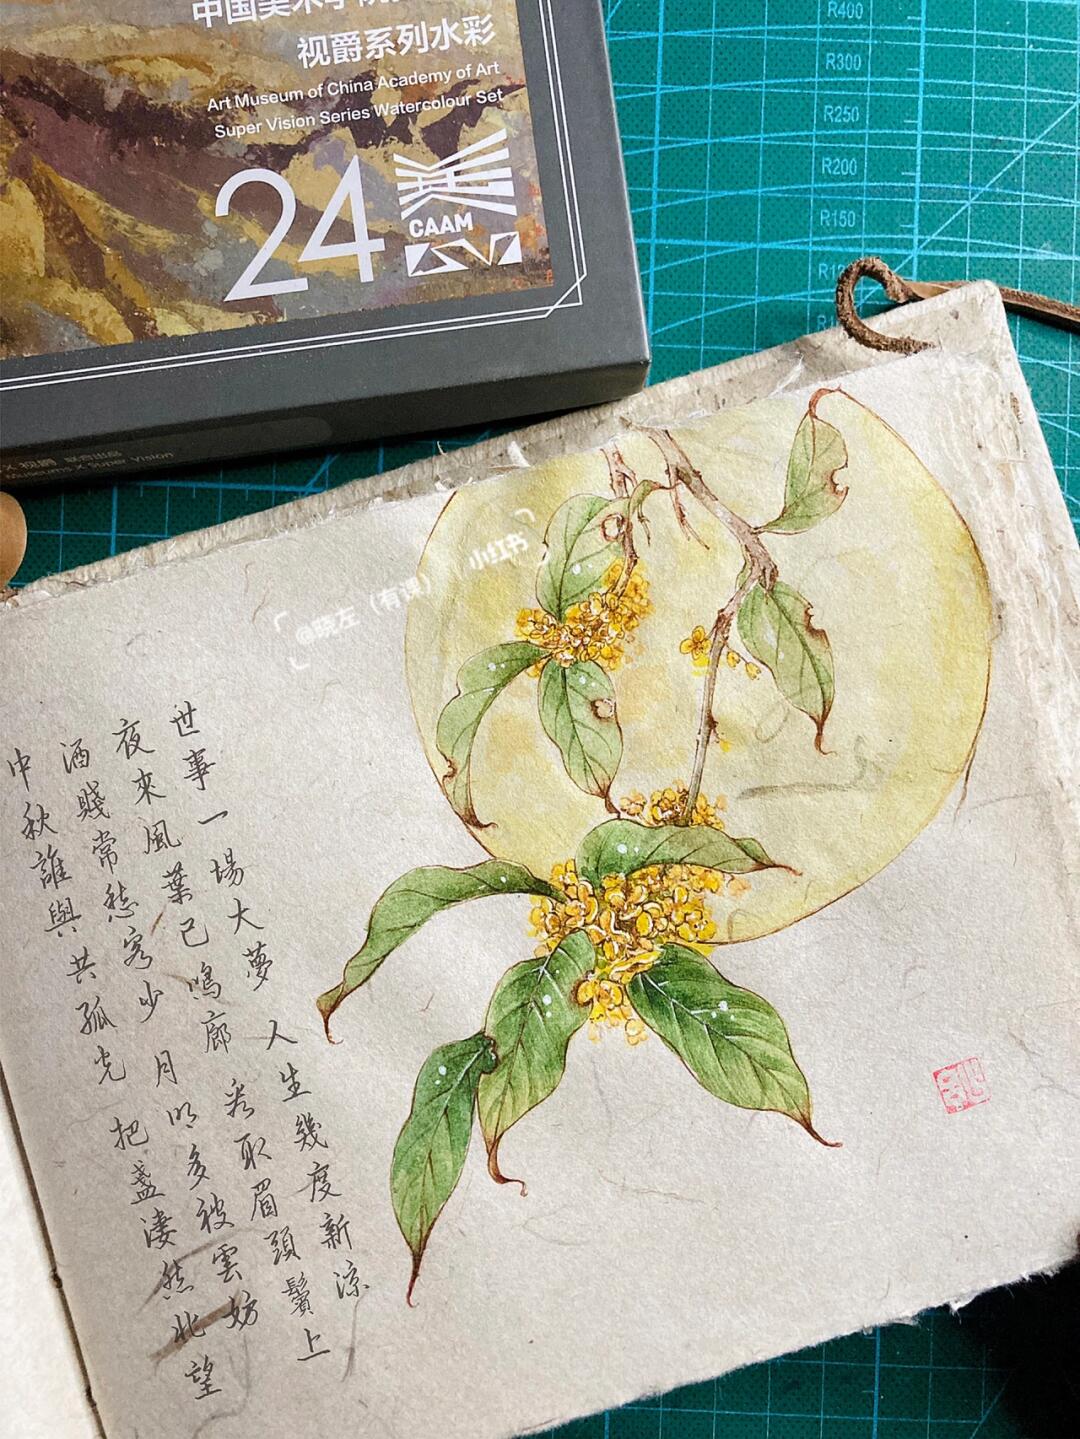 视爵系列水彩
Art Museum of China Academy of Art
Super Vision Series Watercolour Set
24
CAAM
R400
R300
R250
R200
R150
@晓左（有课）
小红书
世事一場大夢 人生幾度新涼
夜來風葉已鳴廊 看取眉頭鬢上
酒賤常愁客少 月明多被雲妨
中秋誰與共孤光 把盞淒然北望